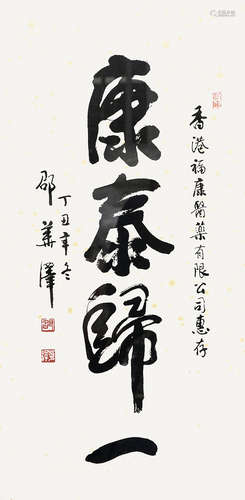 香港福康醫藥有限公司惠存
康泰歸一
丁丑年冬
邵華澤